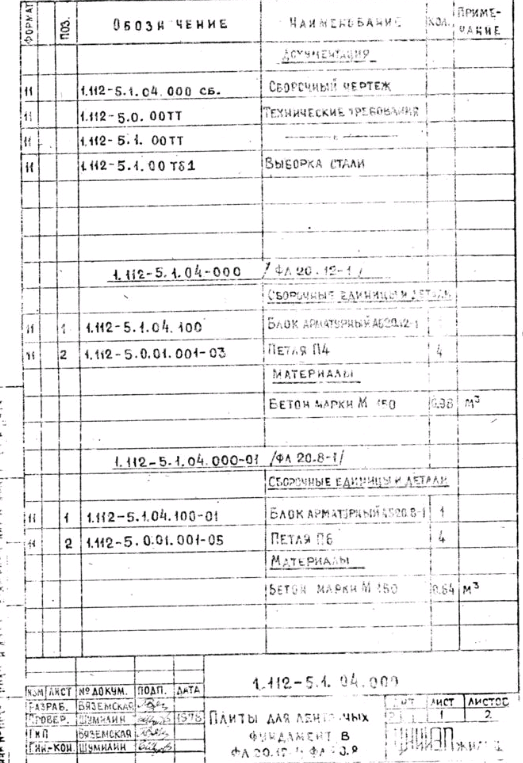 ФОРМАТ ПОЗ. ОБОЗНАЧЕНИЕ НАИМЕНОВАНИЕ КОЛ. ПРИМЕ-
ЧАНИЕ
ДОКУМЕНТАЦИЯ
11 1.112-5.1.04.000 СБ. СБОРОЧНЫЙ ЧЕРТЕЖ
11 1.112-5.0.00ТТ ТЕХНИЧЕСКИЕ ТРЕБОВАНИЯ
11 1.112-5.1.00ТТ
11 1.112-5.1.00ТБ1 ВЫБОРКА СТАЛИ
1.112-5.1.04-000 /ФЛ 20.12-1/
СБОРОЧНЫЕ ЕДИНИЦЫ И ДЕТАЛИ
11 1 1.112-5.1.04.100 БЛОК АРМАТУРНЫЙ АБ20.12-1
11 2 1.112-5.0.01.001-03 ПЕТЛЯ П4 4
МАТЕРИАЛЫ
БЕТОН МАРКИ М 150 0.98 М³
1.112-5.1.04.000-01 /ФЛ 20.8-1/
СБОРОЧНЫЕ ЕДИНИЦЫ И ДЕТАЛИ
11 1 1.112-5.1.04.100-01 БЛОК АРМАТУРНЫЙ АБ20.8-1 1
11 2 1.112-5.0.01.001-05 ПЕТЛЯ П6 4
МАТЕРИАЛЫ
БЕТОН МАРКИ М 150 0.64 М³
1.112-5.1.04.000
ИЗМ ЛИСТ № ДОКУМ. ПОДП. ДАТА
РАЗРАБ. ВЯЗЕМСКАЯ
ПРОВЕР. ШУМИЛИН 1978
ГИП ВЯЗЕМСКАЯ
ГИН-КОН. ШУМИЛИН
ПЛИТЫ ДЛЯ ЛЕНТОЧНЫХ
ФУНДАМЕНТОВ
ЛИТ ЛИСТ ЛИСТОВ
1 2